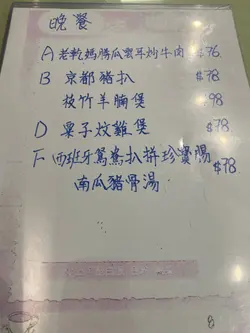 晚餐
A 老乾媽勝瓜雲耳炒牛肉 $76
B 京都豬扒 $78
枝竹羊腩煲 $98
D 栗子炆雞煲 $78
F 西班牙鴛鴦扒拼珍寶腸 $78
南瓜豬骨湯
8